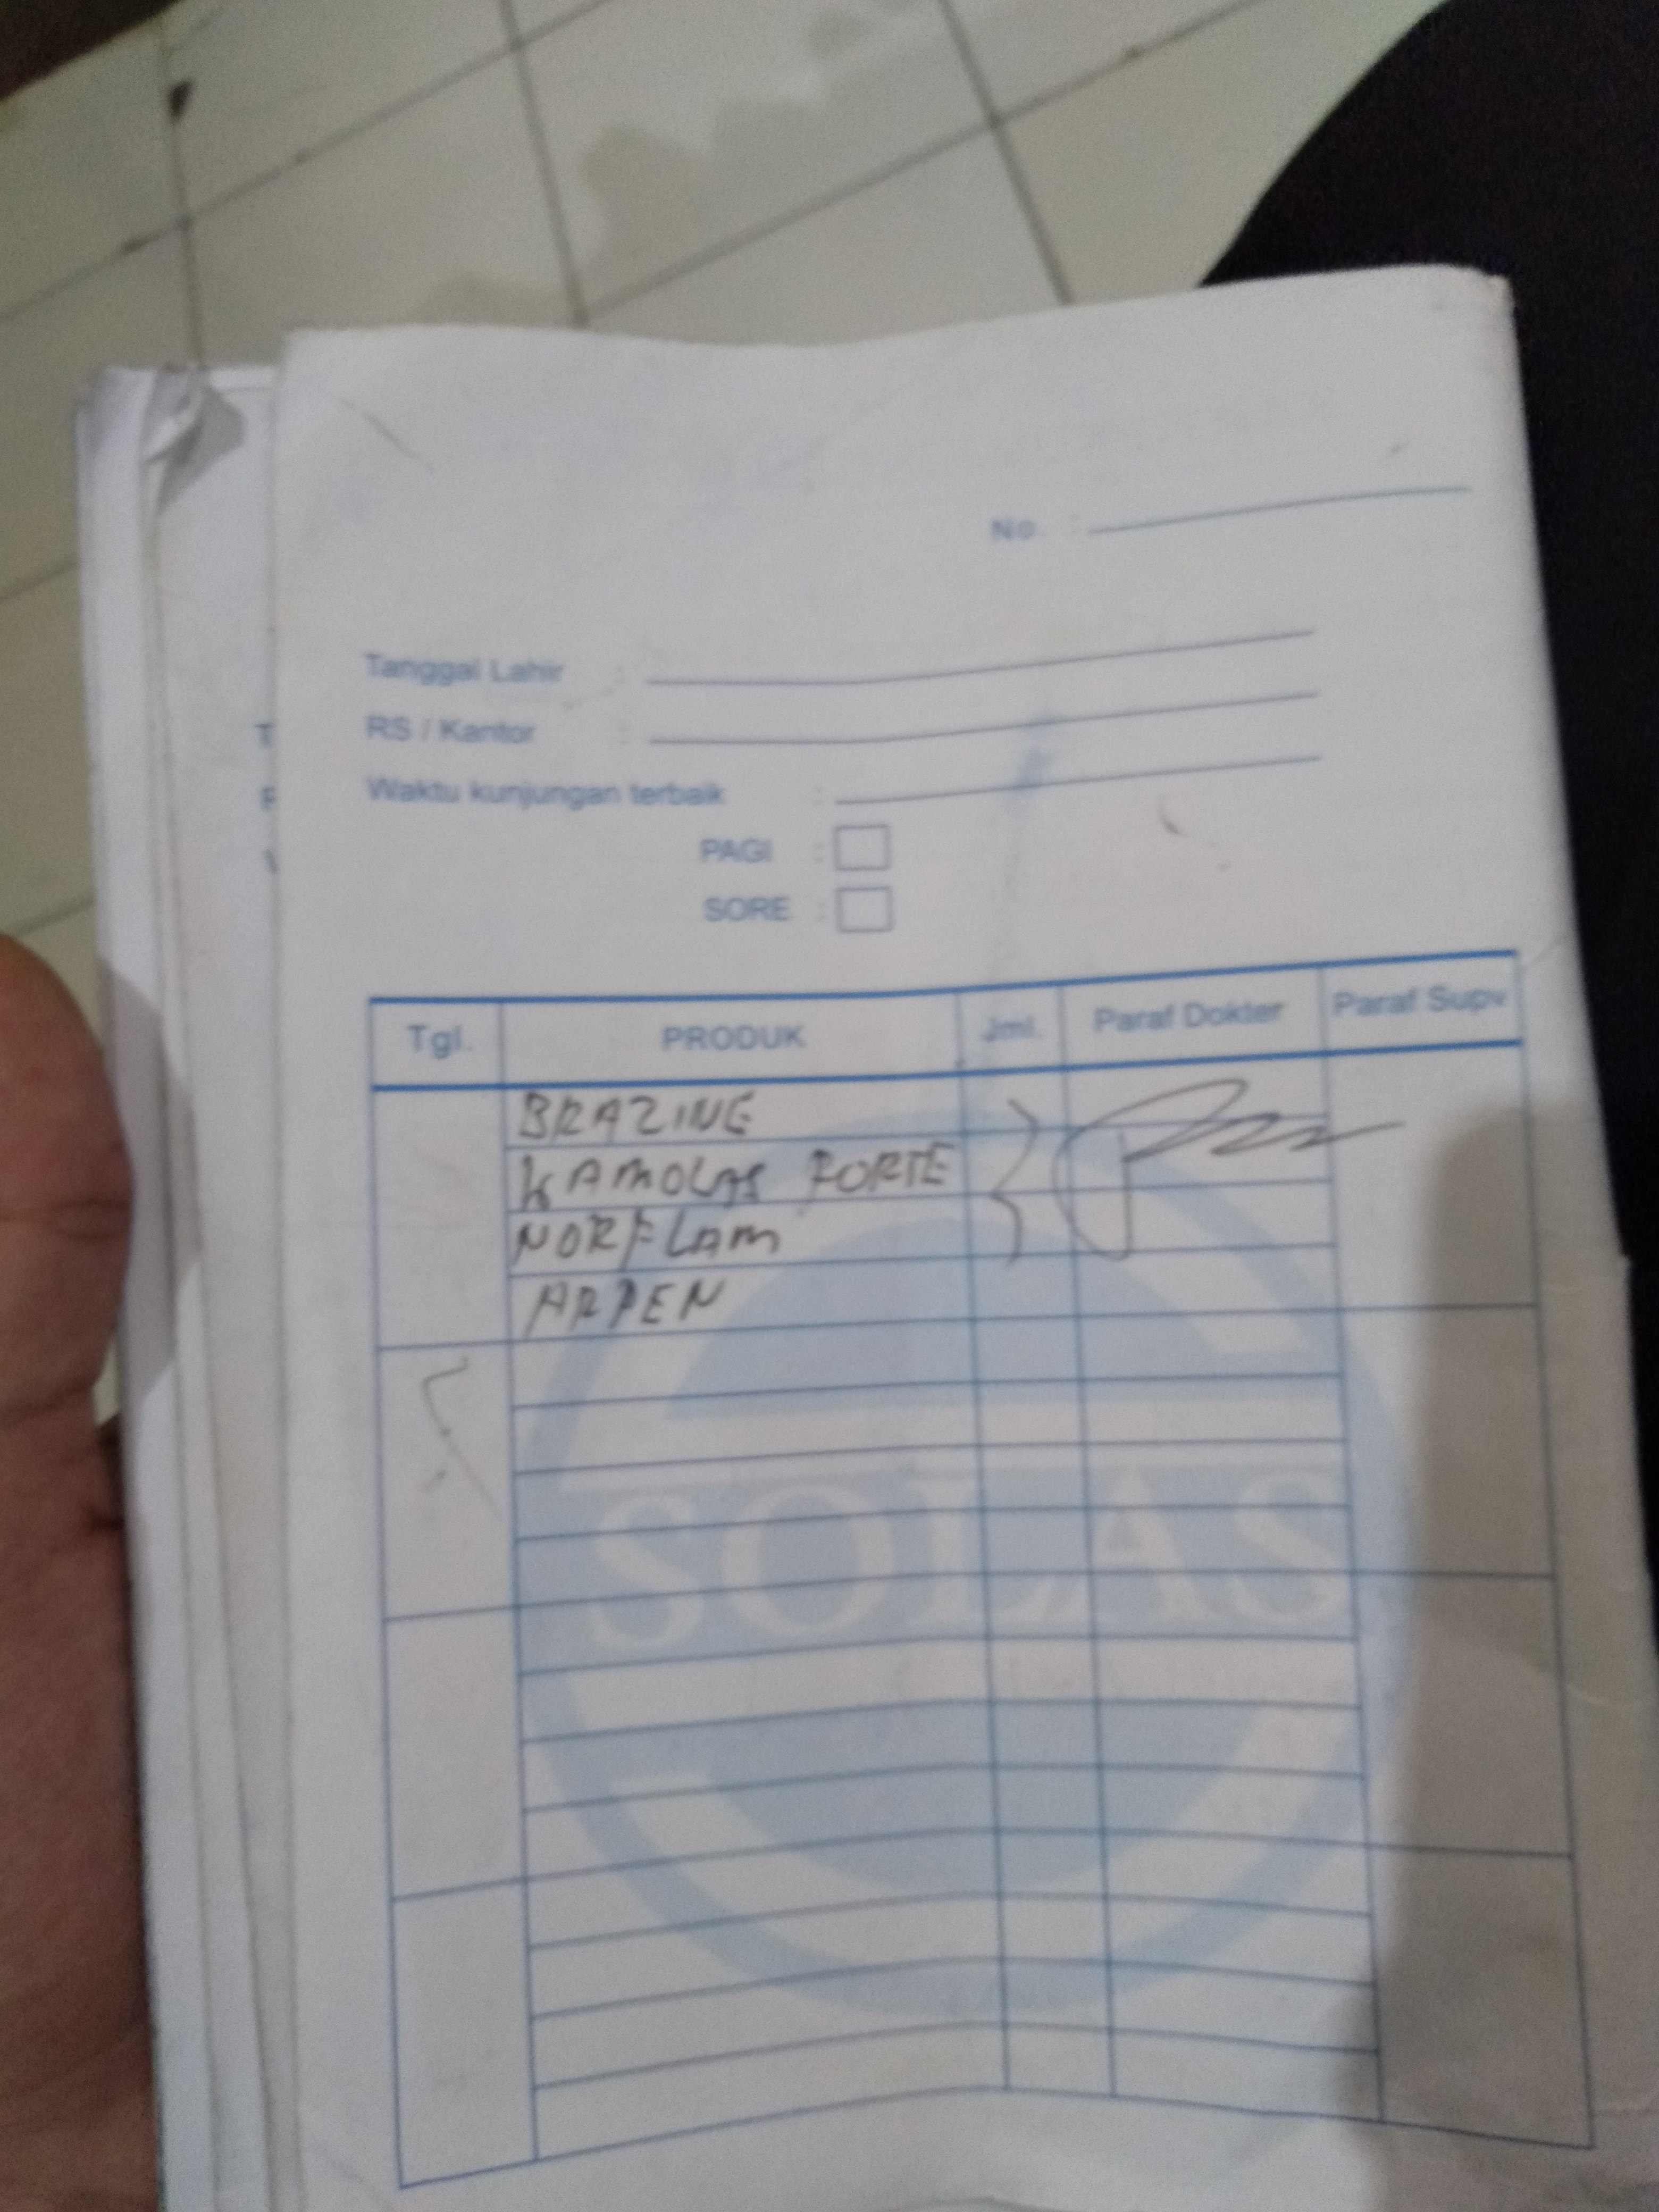 No :
Tanggal Lahir :
RS / Kantor :
Waktu kunjungan terbaik :
PAGI :
SORE :
Tgl. PRODUK Jml. Paraf Dokter Paraf Supv
BRAZINE
KAMOLAS FORTE
NORFLAM
ARPEN
SOLAS